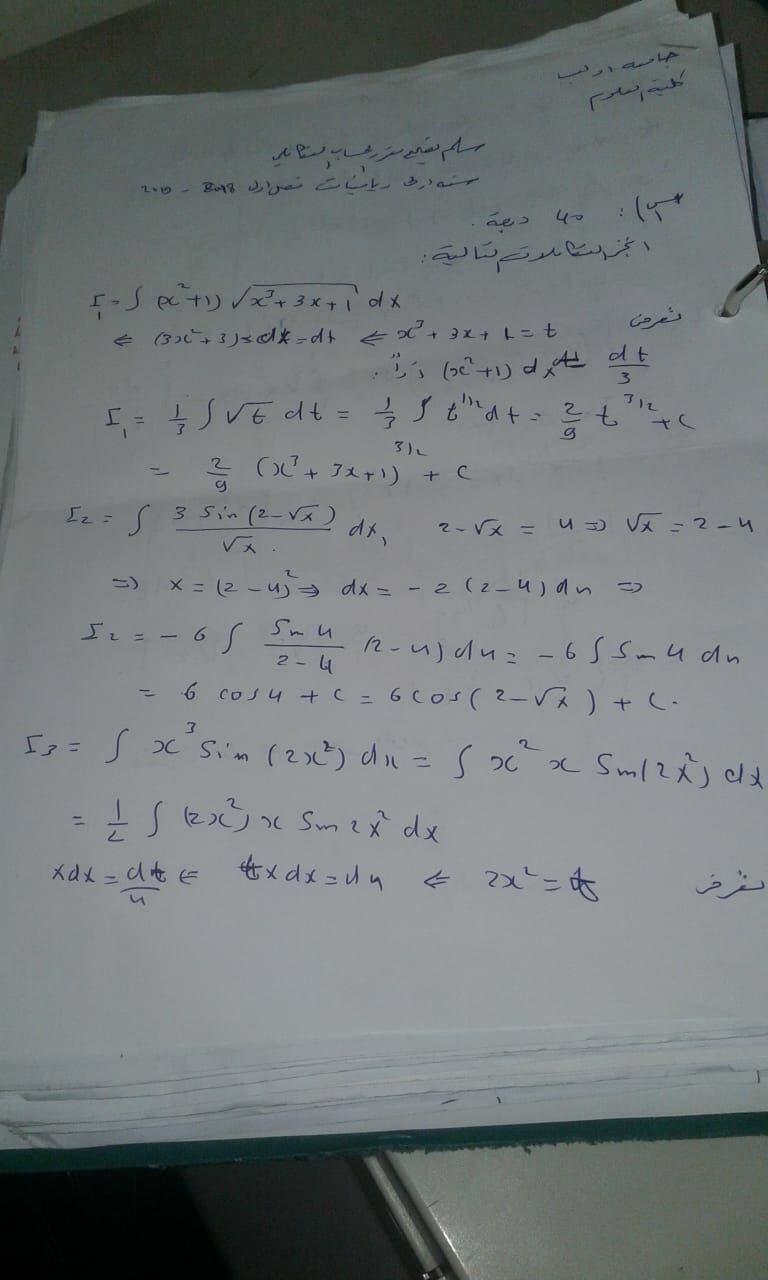 جامعة ادلب
كلية العلوم
سلم تصحيح مقرر حساب التكاملي
سنة اولى رياضيات فصل اول 2018 - 2019
س1): 40 درجة.
أنجز التكاملات التالية:
I₁ = ∫ (x²+1) √(x³+3x+1) dx
نفرض x³ + 3x + 1 = t ⇐ (3x²+3) dx = dt ⇐
(x²+1) dx = dt/3 إذاً:
I₁ = 1/3 ∫ √t dt = 1/3 ∫ t^(1/2) dt = 2/9 t^(3/2) + C
= 2/9 (x³ + 3x + 1)^(3/2) + C
I₂ = ∫ (3 Sin(2-√x))/√x dx, 2-√x = u ⇒ √x = 2-u
⇒ x = (2-u)² ⇒ dx = -2(2-u) du ⇒
I₂ = -6 ∫ (Sin u)/(2-u) (2-u) du = -6 ∫ Sin u du
= 6 cos u + c = 6 cos(2-√x) + C.
I₃ = ∫ x³ Sin(2x²) dx = ∫ x² x Sin(2x²) dx
= 1/2 ∫ (2x²) x Sin 2x² dx
نفرض 2x² = t ⇐ 4x dx = du ⇐ x dx = dt/4